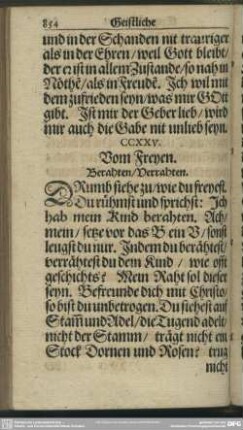 854 Geistliche
und in der Schanden nit trauriger
als in der Ehren/ weil Gott bleibt/
der er ist in allem Zustande/ so nah in
Nöthẽ/ als in Freudẽ. Ich wil mit
dem zufrieden seyn/ was mir GOtt
gibt. Ist mir der Geber lieb/ wird
mir auch die Gabe nit unlieb seyn.
CCXXV.
Vom Freyen.
Berahten/ Verrahten.
DRumb siehe zu/ wie du freyest.
Du rühmst und sprichst: Ich
hab mein Kind berahten. Ach/
mein/ setze vor das B ein V/ sonst
leugst du nur. Indem du berähtest/
verrähtest du dein Kind/ wie offt
geschichts? Mein Raht sol dieser
seyn. Befreunde dich mit Christo/
so bist du unbetrogen. Du siehest auf
Stam̃ und Adel/ die Tugend adelt/
nicht der Stamm/ trägt nicht ein
Stock Dornen und Rosen? trug
nicht